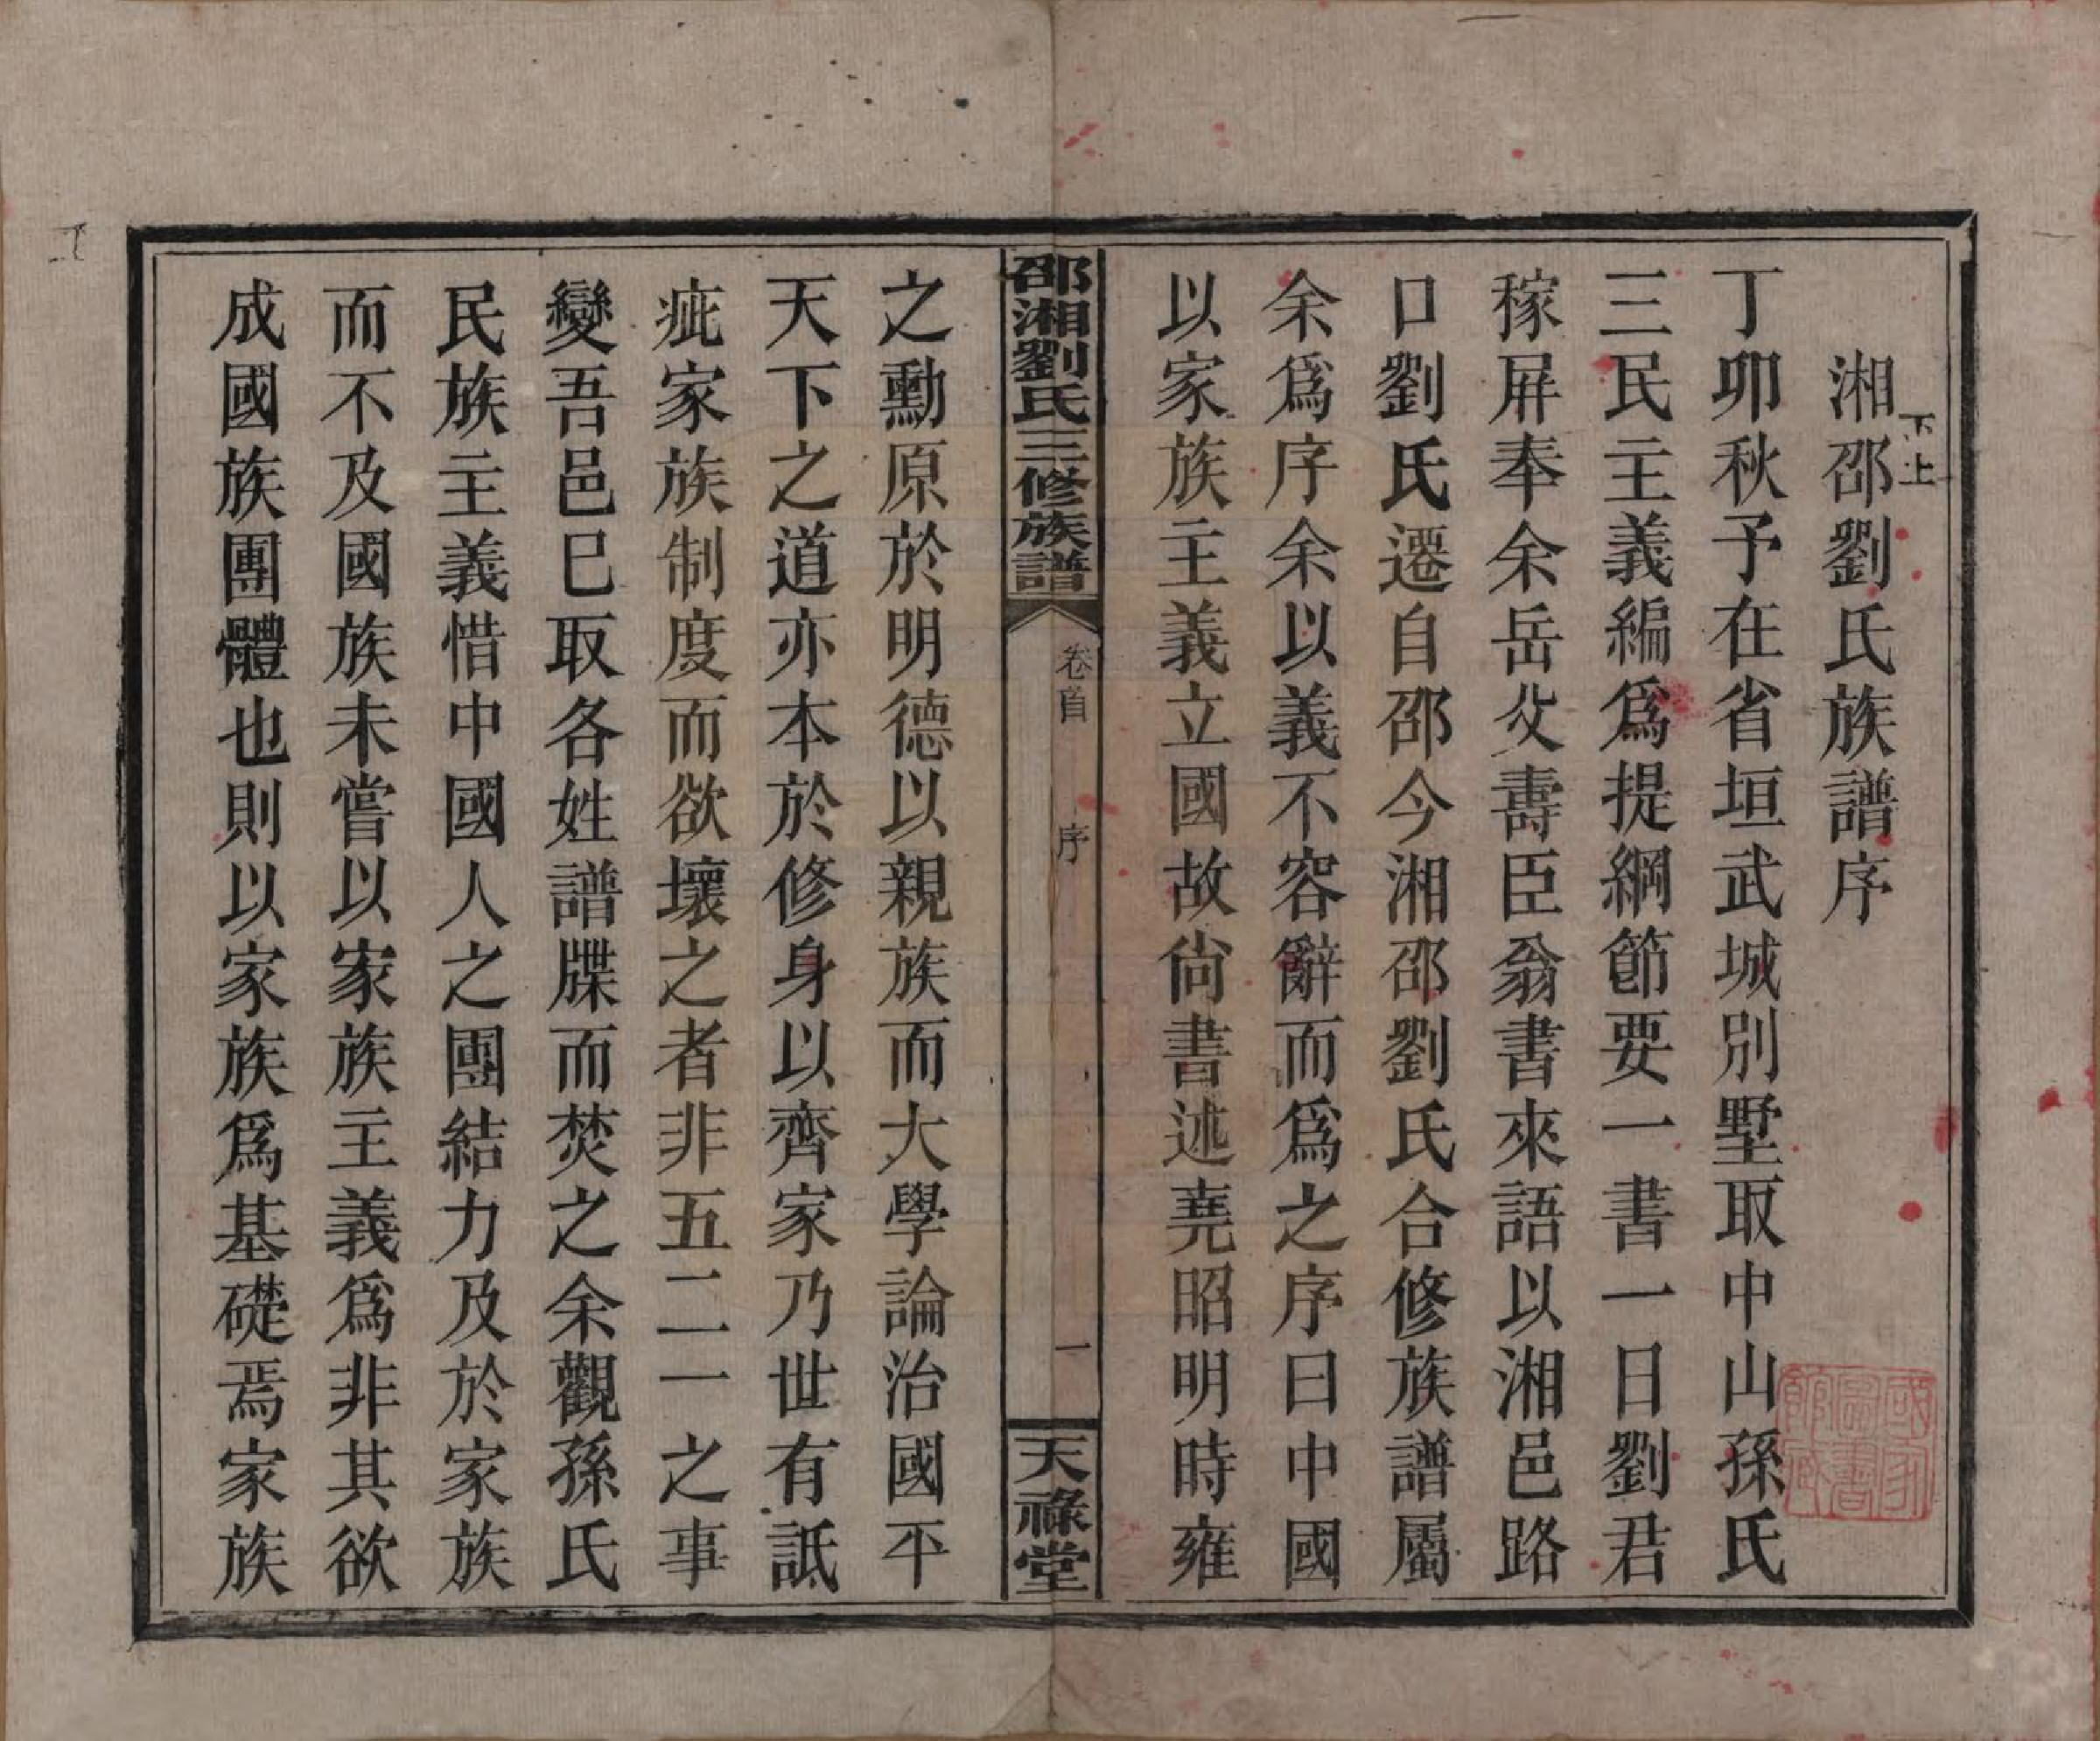 湘邵劉氏族譜序
下上
丁卯秋予在省垣武城別墅取中山孫氏
三民主義編爲提綱節要一書一日劉君
稼屏奉余岳父壽臣翁書來語以湘邑路
口劉氏遷自邵今湘邵劉氏合修族譜屬
余爲序余以義不容辭而爲之序曰中國
以家族主義立國故尙書述堯昭明時雍
邵湘劉氏三修族譜
卷首
序
一
天祿堂
之勳原於明德以親族而大學論治國平
天下之道亦本於修身以齊家乃世有詆
疵家族制度而欲壞之者非五二一之事
變吾邑巳取各姓譜牒而焚之余觀孫氏
民族主義惜中國人之團結力及於家族
而不及國族未嘗以家族主義爲非其欲
成國族團體也則以家族爲基礎焉家族
國家圖書館藏